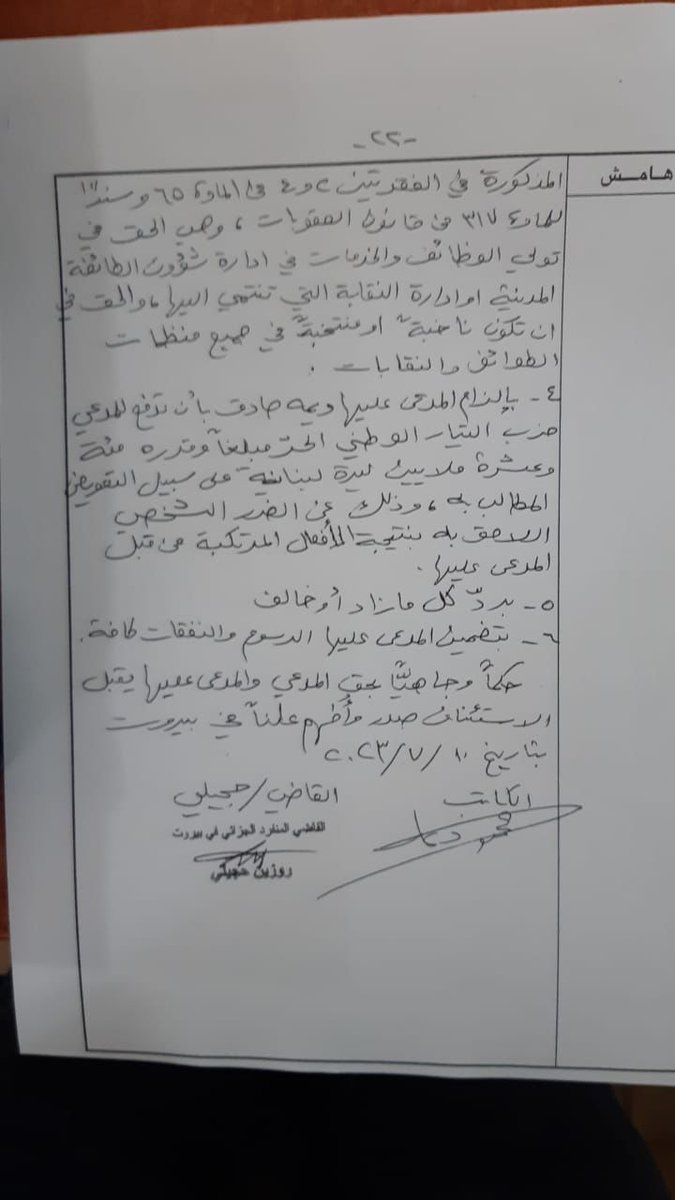 -٢٢-
هامش
المذكورة في الفقرتين ٢ و ٤ من المادة ٦٥ وسنداً
للمادة ٣١٧ من قانون العقوبات، وهي الحق في
تولي الوظائف والخدمات في ادارة شؤون الطائفة
المدنية او ادارة النقابة التي تنتمي اليها، والحق في
ان تكون ناخبة او منتخبة في جميع منظمات
الطوائف والنقابات.
٤- بإلزام المدعى عليها ديمه صادق بأن تدفع للمدعي
حزب التيار الوطني الحرّ مبلغاً وقدره مئة
وعشرة ملايين ليرة لبنانية على سبيل التعويض
المطالب به، وذلك عن الضرر الشخصي
اللاحق به بنتيجة الأفعال المرتكبة من قبل
المدعى عليها.
٥- بردّ كل ما زاد أو خالف
٦- بتضمين المدعى عليها الرسوم والنفقات كافة.
حكماً وجاهيّاً بحق المدعي والمدعى عليها يقبل
الاستئناف صدر وأُفهم علناً في بيروت
بتاريخ ١٠/٧/٢٠٢٣
الكاتب القاضي/خجيلي
القاضي المنفرد الجزائي في بيروت
روزين حجيلي